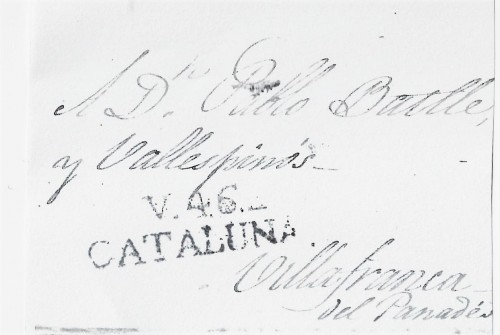 A Dn. Pablo Batlle,
y Vallespinós
V. 46.
CATALUNA
Villafranca
del Panadés